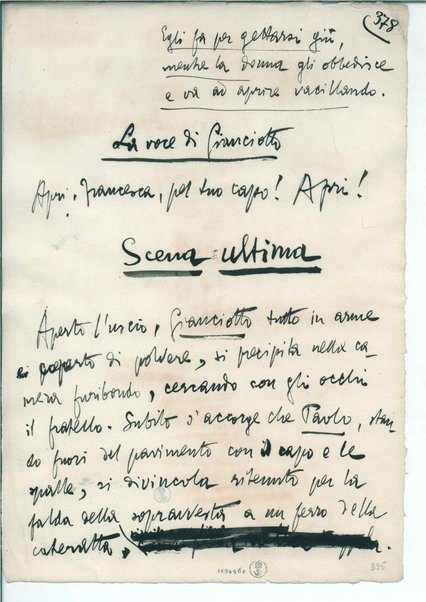 378
Egli fa per gettarsi giù,
mentre la donna gli obbedisce
e va ad aprire vacillando.
La voce di Gianciotto
Apri, Francesca, pel tuo capo! Apri!
Scena ultima
Aperto l'uscio, Gianciotto tutto in arme
e coperto di polvere, si precipita nella ca
mera furibondo, cercando con gli occhi
il fratello. Subito s'accorge che Paolo, stan
do fuori del pavimento con il capo e le
spalle, si divincola ritenuto per la
falda della sopravvesta a un ferro della
cateratta,
1096960
395